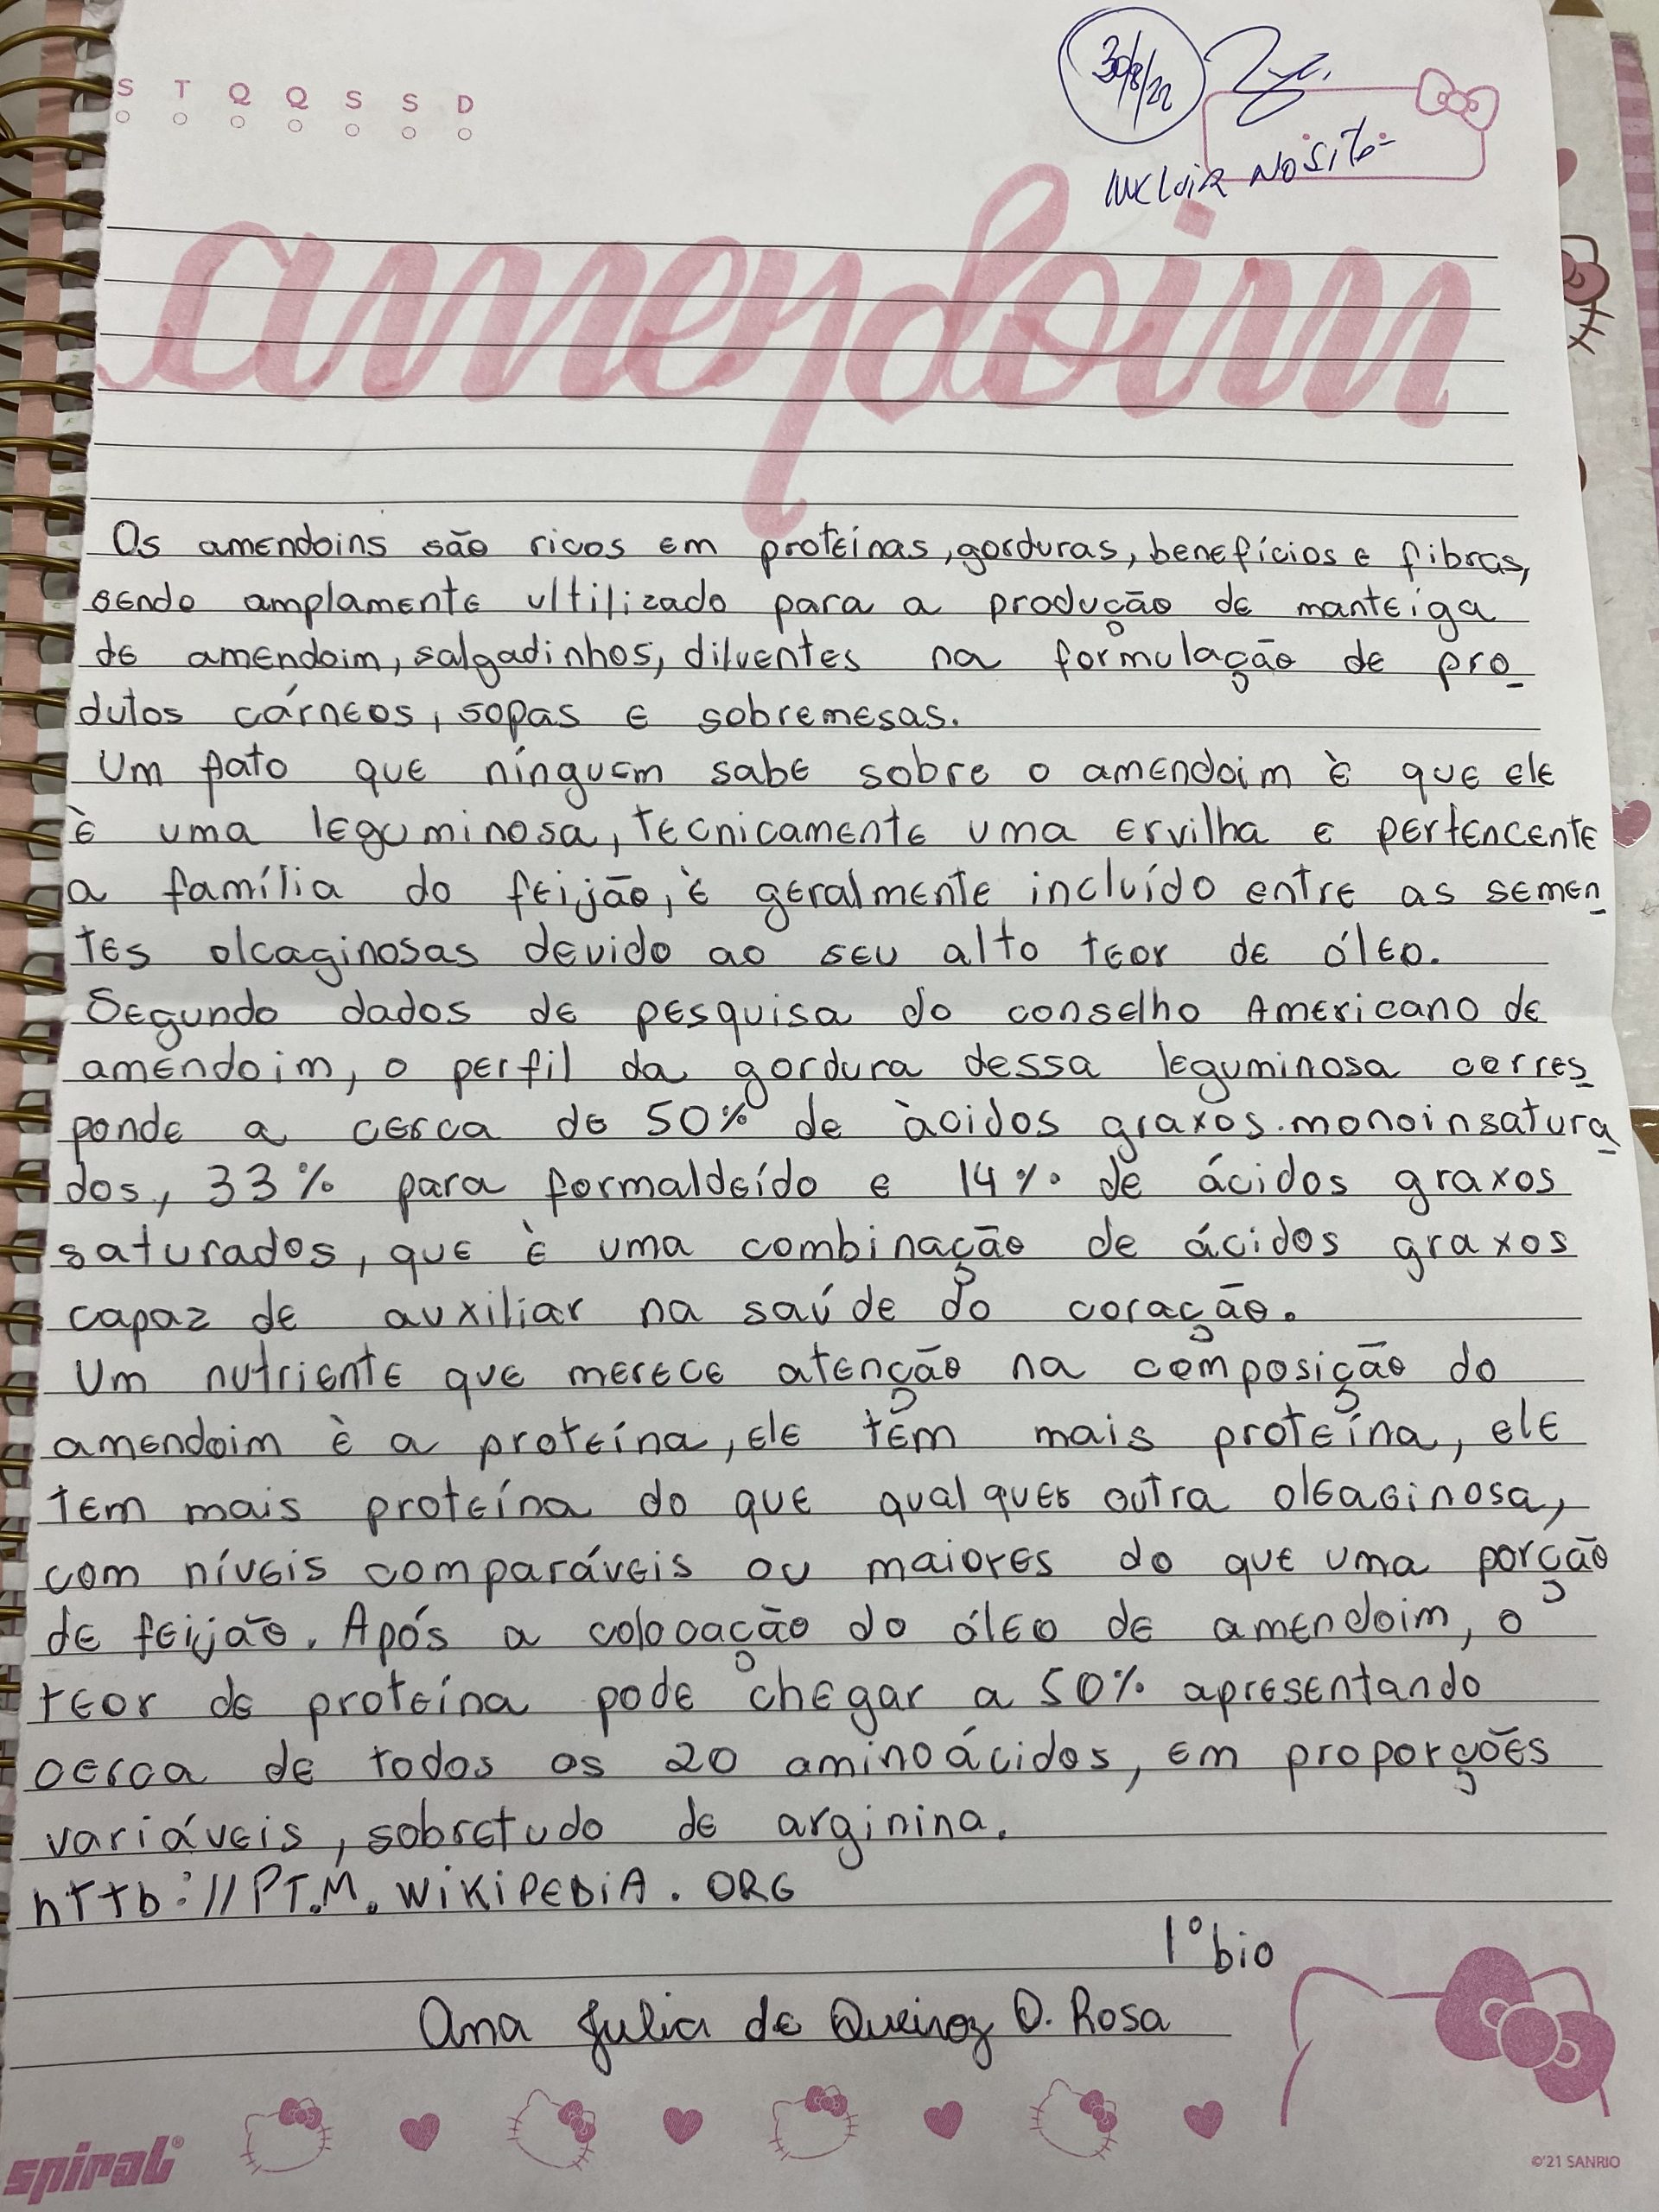 S T Q Q S S D
30/8/22
INCLUIR NO SITE
amendoim
Os amendoins são ricos em proteínas, gorduras, benefícios e fibras,
sendo amplamente ultilizado para a produção de manteiga
de amendoim, salgadinhos, diluentes na formulação de pro
dutos cárneos, sopas e sobremesas.
Um fato que nínguem sabe sobre o amendoim è que ele
è uma leguminosa, tecnicamente uma ervilha e pertencente
a família do feijão, è geralmente incluído entre as semen
tes oleaginosas devido ao seu alto teor de óleo.
Segundo dados de pesquisa do conselho Americano de
amendoim, o perfil da gordura dessa leguminosa corres
ponde a cerca de 50% de àcidos graxos monoinsatura
dos, 33% para formaldeído e 14% de ácidos graxos
saturados, que è uma combinação de ácidos graxos
capaz de auxiliar na saúde do coração.
Um nutriente que merece atenção na composição do
amendoim è a proteína, ele tem mais proteína, ele
tem mais proteína do que qualquer outra oleaginosa,
com níveis comparáveis ou maiores do que uma porção
de feijão. Após a colocação do óleo de amendoim, o
teor de proteína pode chegar a 50% apresentando
cerca de todos os 20 aminoácidos, em proporções
variáveis, sobretudo de arginina.
httb://PT.M.WIKIPEDIA.ORG
1° bio
Ana Julia de Queiroz O. Rosa
spiral®
©'21 SANRIO